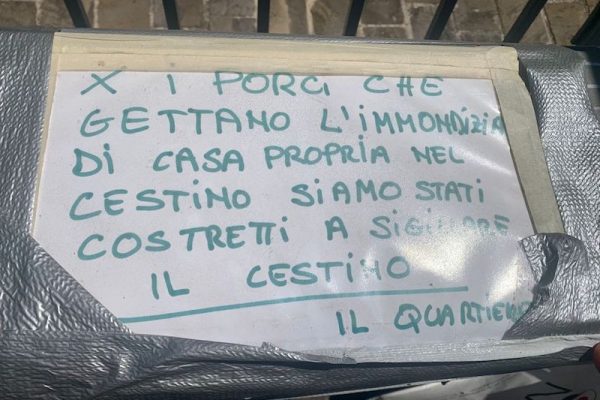 X I PORCI CHE
GETTANO L'IMMONDIZIA
DI CASA PROPRIA NEL
CESTINO SIAMO STATI
COSTRETTI A SIGILLARE
IL CESTINO
IL QUARTIERE